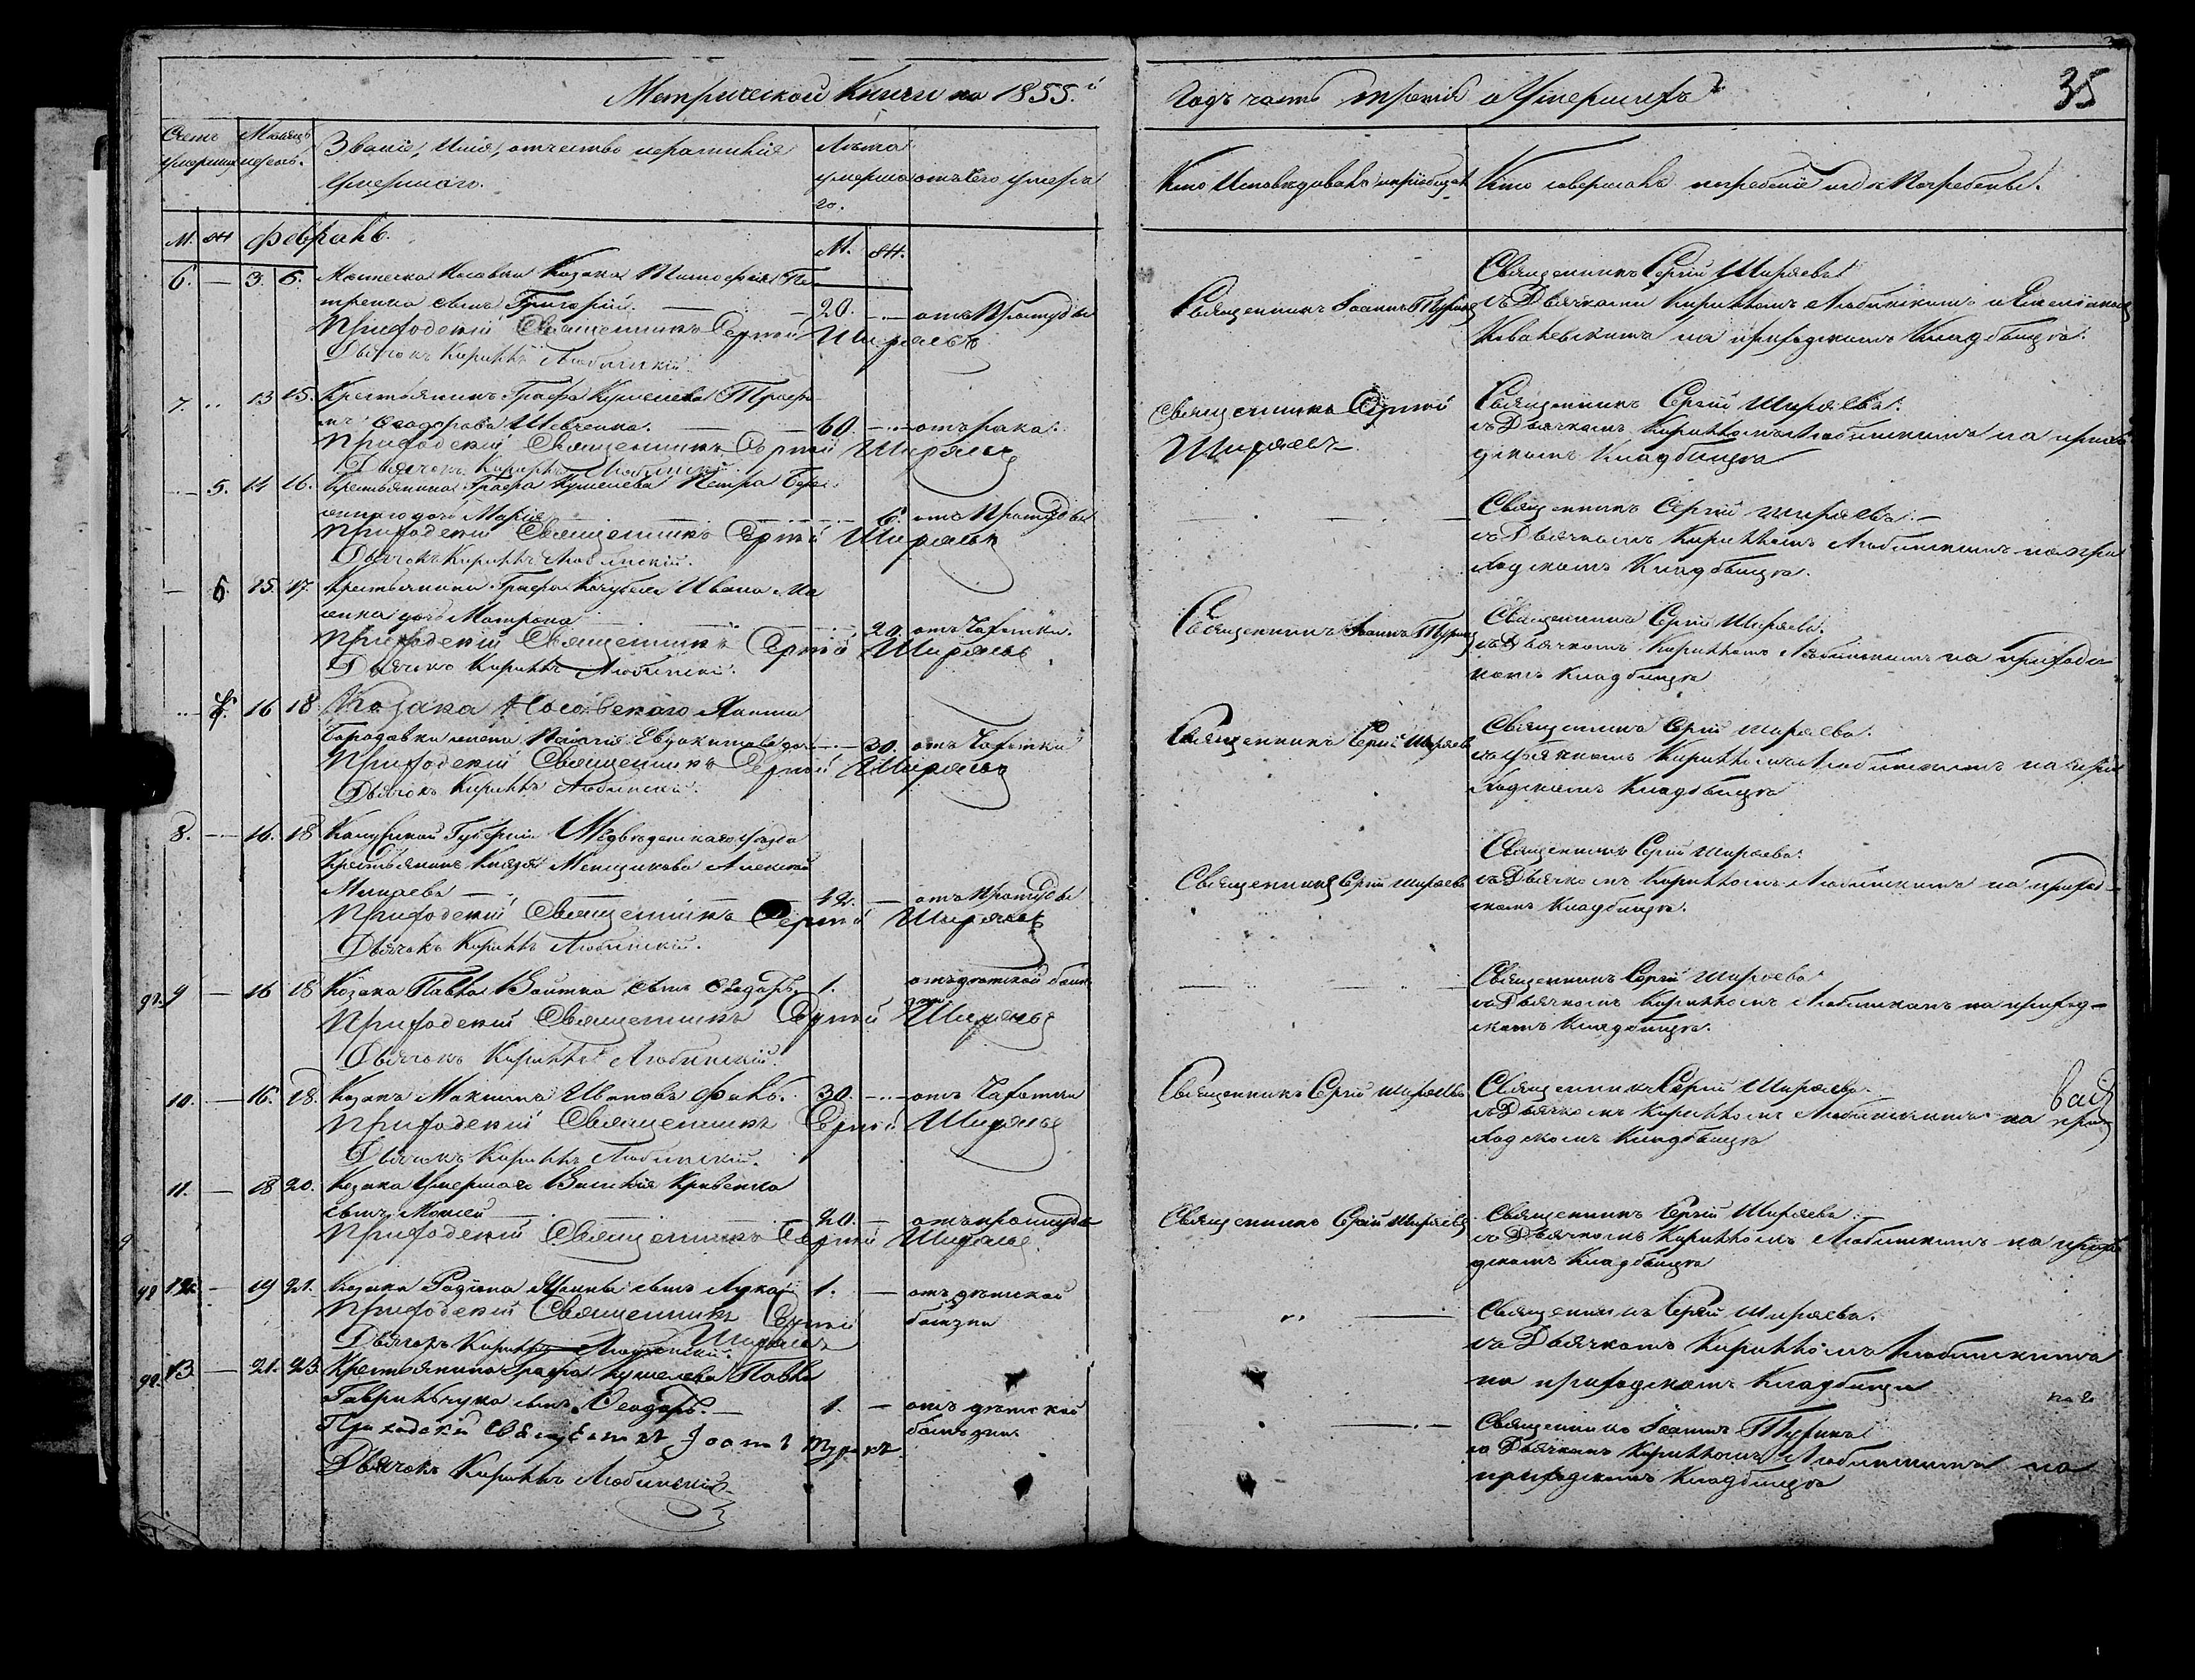 Метрической Книги на 1855.й
Годъ часть третія о Умершихъ
35
Счетъ умершихъ
Месяцъ и день.
Званіе, Имя, отчество и фамилія
умершаго.
Лѣта
умерша
го.
отъ чего умеръ
Кто Исповѣдывалъ и пріобщалъ
Кто совершалъ погребеніе и гдѣ Погребены.
М. Ж
Февраль.
М. Ж.
6. — 3. 5. Козака Тимофея Пе
тренка сынъ Григорій. — 20. — отъ Простуды
Приходскій Священникъ Сергій Ширяевъ
Дьячокъ Кириллъ Любинскій.
Священникъ Іоаннъ
Священникъ Сергій Ширяевъ
съ Дьячками Кирилломъ Любинскимъ и
на приходскомъ Кладбищѣ.
7. 13 15. Крестьянинъ Графа Кушелева Трофи
мъ Феодоровъ Шевченко. — 60. — отъ рака.
Приходскій Священникъ Сергій Ширяевъ
Дьячокъ Кириллъ Любинскій.
Священникъ Сергій
Ширяевъ
Священникъ Сергій Ширяевъ.
съ Дьячкомъ Кирилломъ Любинскимъ на прихо
дскомъ Кладбищѣ
— 5. 14 16. Крестьянина Графа Кушелева Петра
дочь Марія — 6. отъ Простуды
Приходскій Священникъ Сергій Ширяевъ
Дьячокъ Кириллъ Любинскій.
Священникъ Сергій Ширяевъ. —
съ Дьячкомъ Кирилломъ Любинскимъ на при
ходскомъ Кладбищѣ.
— 6. 15. 17. Крестьянина Графа Кочубея Ивана
дочь Матрона — 20. отъ Чахотки.
Приходскій Священникъ Сергій Ширяевъ
Дьячокъ Кириллъ Любинскій.
Священникъ Іоаннъ
Священникъ Сергій Ширяевъ.
съ Дьячкомъ Кирилломъ Любинскимъ на приход
скомъ Кладбищѣ
7. 16 18 Козака Носовскаго
Бородавки жена Евдокимова дочь — 30. отъ Чахотки
Приходскій Священникъ Сергій Ширяевъ
Дьячокъ Кириллъ Любинскій.
Священникъ Сергій Ширяевъ
Священникъ Сергій Ширяевъ.
съ Дьячкомъ Кирилломъ Любинскимъ на при
ходскомъ Кладбищѣ
8. — 16. 18 Калужской Губерніи уѣзда
Крестьянинъ Князя Меншикова Алексѣй
— отъ Простуды
Приходскій Священникъ Сергій Ширяевъ
Дьячокъ Кириллъ Любинскій.
Священникъ Сергій Ширяевъ
Священникъ Сергій Ширяевъ.
съ Дьячкомъ Кирилломъ Любинскимъ на приход
скомъ Кладбищѣ.
9 — 16 18 Козака Павла Войтка сынъ Феодоръ 1. отъ дѣтской болѣ
зни
Приходскій Священникъ Сергій Ширяевъ
Дьячокъ Кириллъ Любинскій.
Священникъ Сергій Ширяевъ
съ Дьячкомъ Кирилломъ Любинскимъ на приход-
скомъ Кладбищѣ.
10. — 16. 18. Козакъ Максимъ Ивановъ 30. — отъ Чахотки
Приходскій Священникъ Сергій Ширяевъ
Дьячокъ Кириллъ Любинскій.
Священникъ Сергій Ширяевъ
Священникъ Сергій Ширяевъ.
съ Дьячкомъ Кирилломъ Любинскимъ на при
ходскомъ Кладбищѣ
11. — 18 20. Козака Умершаго Василія Кривенка
сынъ Моисей 20. — отъ простуды
Приходскій Священникъ Сергій Ширяевъ.
Священникъ Сергій Ширяевъ
Священникъ Сергій Ширяевъ
съ Дьячкомъ Кирилломъ Любинскимъ на прихо
дскомъ Кладбищѣ
12. — 19 21. Козака Родіона сынъ Лука 1. — отъ дѣтской
болѣзни
Приходскій Священникъ Сергій
Ширяевъ
Дьячокъ Кириллъ Любинскій.
Священникъ Сергій Ширяевъ.
съ Дьячкомъ Кирилломъ Любинскимъ
на приходскомъ Кладбищѣ
13 — 21. 23. Крестьянина Графа Кушелева Павла
Гаврильчука сынъ Феодоръ. — 1. — отъ дѣтской
болѣзни
Приходскій Священникъ Іоаннъ
Дьячокъ Кириллъ Любинскій
Священникъ Іоаннъ
съ Дьячкомъ Кирилломъ Любинскимъ на
приходскомъ Кладбищѣ